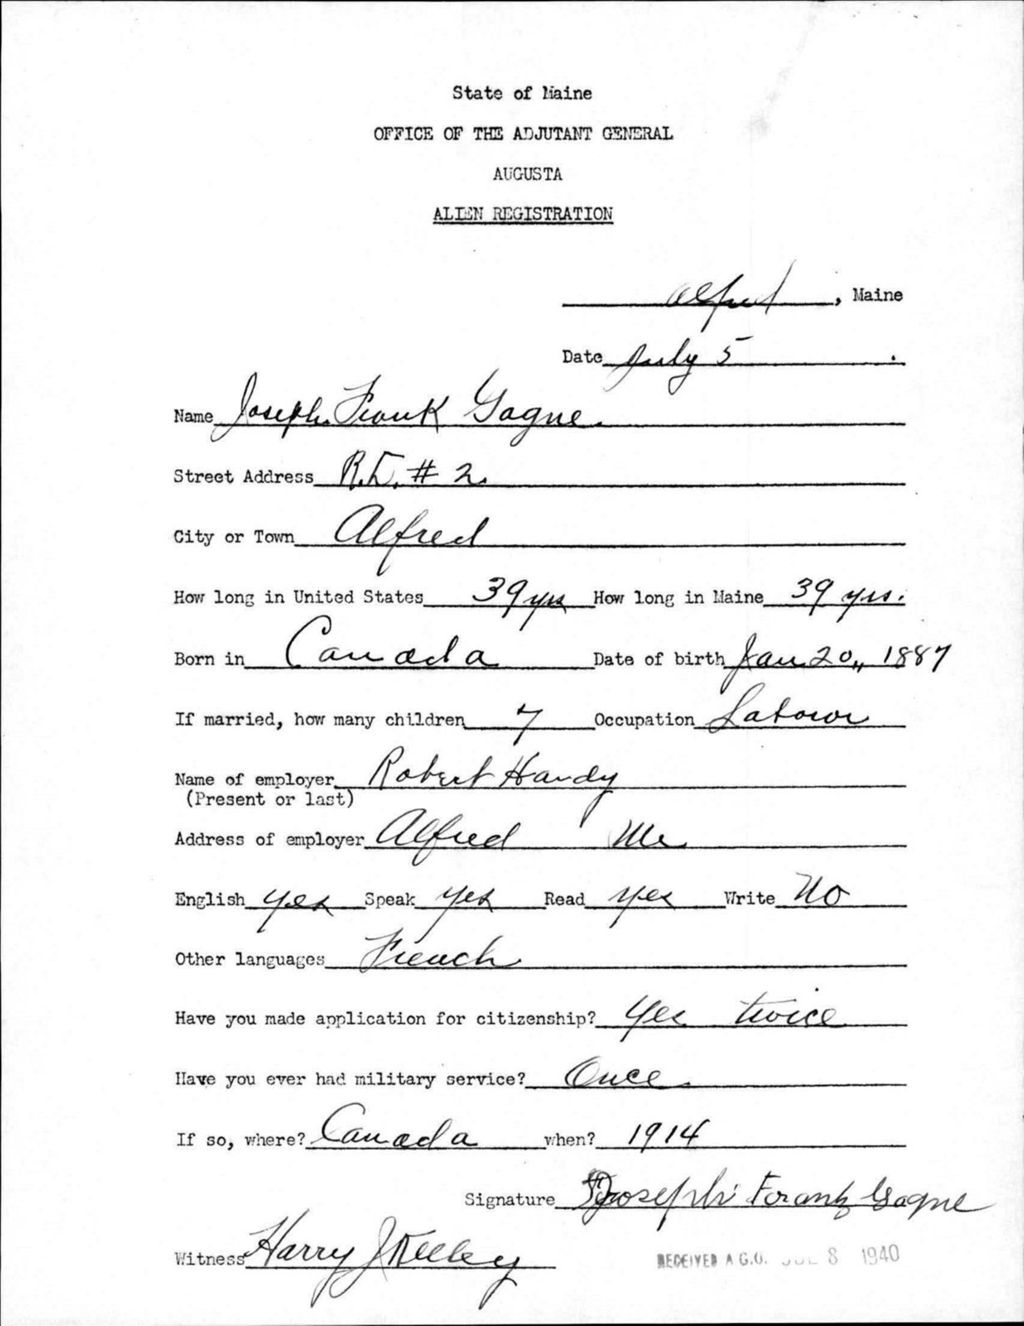 State of Maine
OFFICE OF THE ADJUTANT GENERAL
AUGUSTA
ALIEN REGISTRATION
Alfred, Maine
Date July 5.
Name Joseph. Frank Gagne.
Street Address R.D. # 2.
City or Town Alfred
How long in United States 39 yrs How long in Maine 39 yrs.
Born in Canada Date of birth Jan 20, 1887
If married, how many children 7 Occupation Labour
Name of employer Robert Handy
(Present or last)
Address of employer Alfred Me.
English yes Speak yes Read yes Write No
Other languages French
Have you made application for citizenship? Yes twice
Have you ever had military service? Once.
If so, where? Canada when? 1914
Signature Joseph Frank Gagne
Witness Harry J Kelley
RECEIVED A.G.O. JUL 8 1940